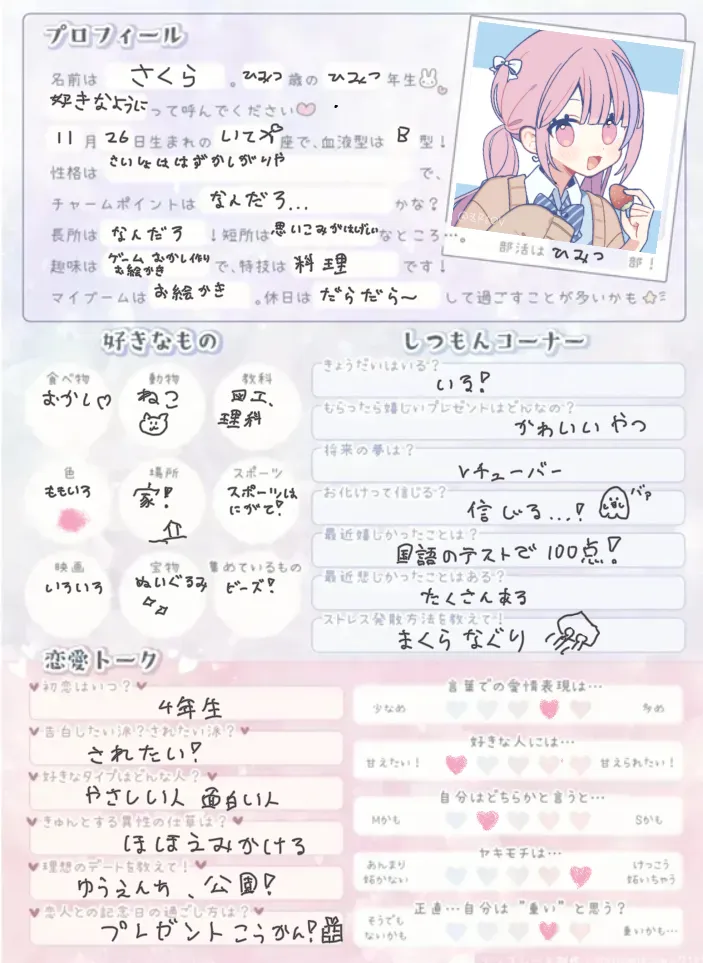 プロフィール
名前は さくら 。ひみつ歳の ひみつ年生
好きなようにって呼んでください
11月26日生まれの いて座で、血液型は B型!
性格は さいしょははずかしがりや で、
チャームポイントは なんだろ... かな?
長所は なんだろ !短所は 思いこみがはげしいなところ…。
部活は ひみつ 部!
趣味は ゲーム おかし作り お絵かき で、特技は 料理 です!
マイブームは お絵かき 。休日は だらだら〜 して過ごすことが多いかも
好きなもの
食べ物 動物 教科
おかし♡ ねこ 図工、
理科
色 場所 スポーツ
ももいろ 家! スポーツは
にがて!
映画 宝物 集めているもの
いろいろ ぬいぐるみ ビーズ!
しつもんコーナー
きょうだいはいる?
いる!
もらったら嬉しいプレゼントはどんなの?
かわいいやつ
将来の夢は?
Vチューバー
お化けって信じる?
信じる...! バァ
最近嬉しかったことは?
国語のテストで100点!
最近悲しかったことはある?
たくさんある
ストレス発散方法を教えて!
まくらなぐり
恋愛トーク
♥初恋はいつ?♥
4年生
♥告白したい派?されたい派?♥
されたい!
♥好きなタイプはどんな人?♥
やさしい人 面白い人
♥きゅんとする異性の仕草は?♥
ほほえみかける
♥理想のデートを教えて!♥
ゆうえんち、公園!
♥恋人との記念日の過ごし方は?♥
プレゼントこうかん!
言葉での愛情表現は…
少なめ 多め
好きな人には…
甘えたい! 甘えられたい!
自分はどちらかと言うと…
Mかも Sかも
ヤキモチは…
あんまり けっこう
妬かない 妬いちゃう
正直…自分は“重い”と思う?
そうでも
ないかも 重いかも…